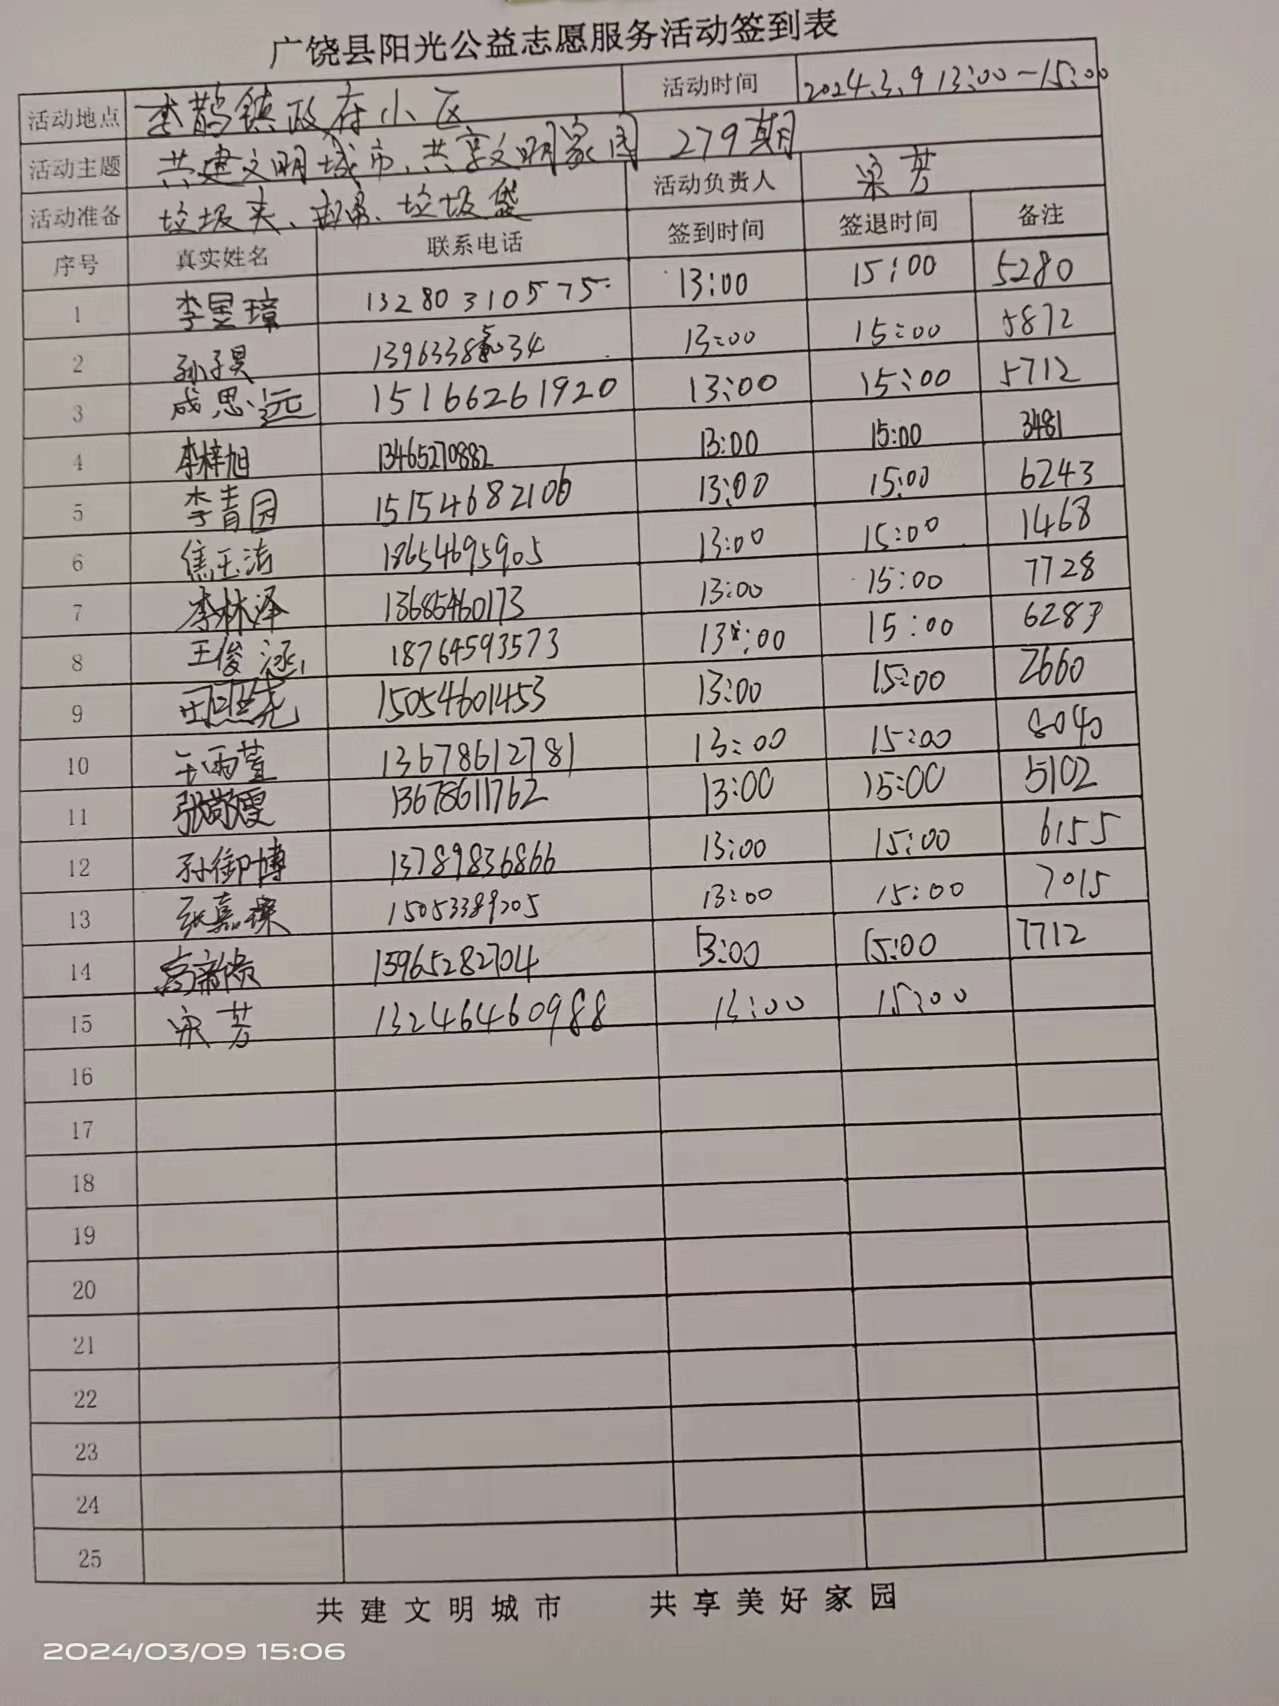 广饶县阳光公益志愿服务活动签到表
活动地点 李鹊镇政府小区 活动时间 2024.3.9 13:00-15:00
活动主题 共建文明城市、共享文明家园 279期
活动准备 垃圾夹、垃圾袋 活动负责人 梁芳
序号 真实姓名 联系电话 签到时间 签退时间 备注
1 李昱璋 13280310575 13:00 15:00 5280
2 孙子昊 13:00 15:00 5872
3 成思远 15166261920 13:00 15:00 5712
4 李梓旭 13465270882 13:00 15:00 3481
5 李青园 15154682106 13:00 15:00 6243
6 焦玉洁 18654695905 13:00 15:00 1468
7 李林泽 13685460173 13:00 15:00 7728
8 王俊涵 18764593573 13:00 15:00 6283
9 15054601453 13:00 15:00 2660
10 王雨萱 13678612781 13:00 15:00 8040
11 张敬雯 13678611762 13:00 15:00 5102
12 孙御博 13789836866 13:00 15:00 6155
13 张嘉璨 15053389205 13:00 15:00 7015
14 15965282704 13:00 15:00 7712
15 梁芳 13246460988 13:00 15:00
16
17
18
19
20
21
22
23
24
25
共建文明城市 共享美好家园
2024/03/09 15:06